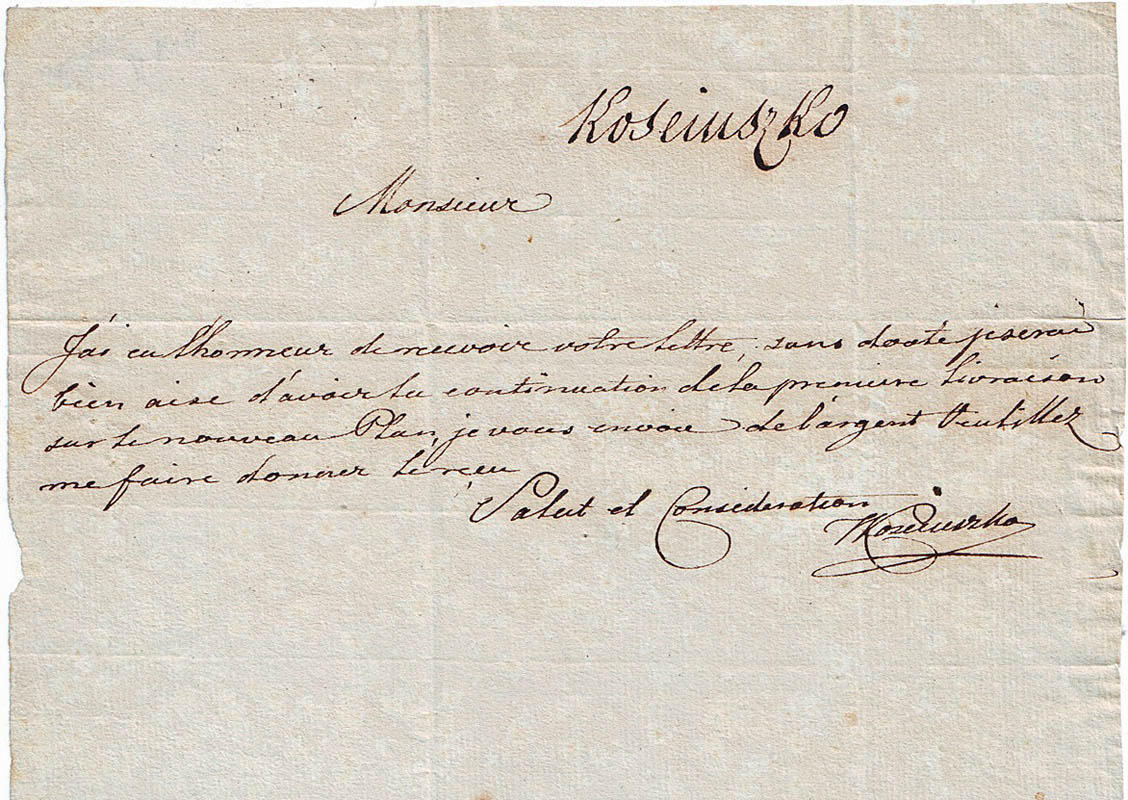 Kosciuszko
Monsieur
J'ai eu l'honneur de recevoir votre lettre, sans doute je serai
bien aise d'avoir la continuation de la premiere livraison
sur le nouveau Plan, je vous envoie de l'argent Veuillez
me faire donner le reçu
Salut et Consideration
TKosciuszko